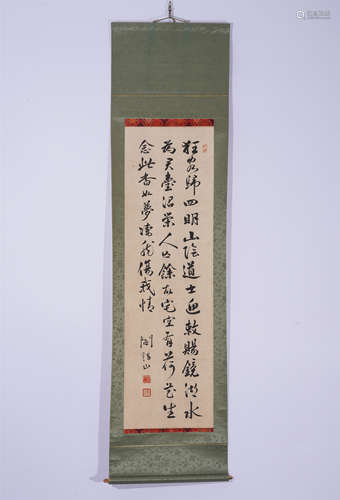 狂客歸四明山陰道士迎敕賜鏡湖水
為君臺沼榮人亡餘故宅空有荷花生
念此杳如夢淒然傷我情
閻錫山